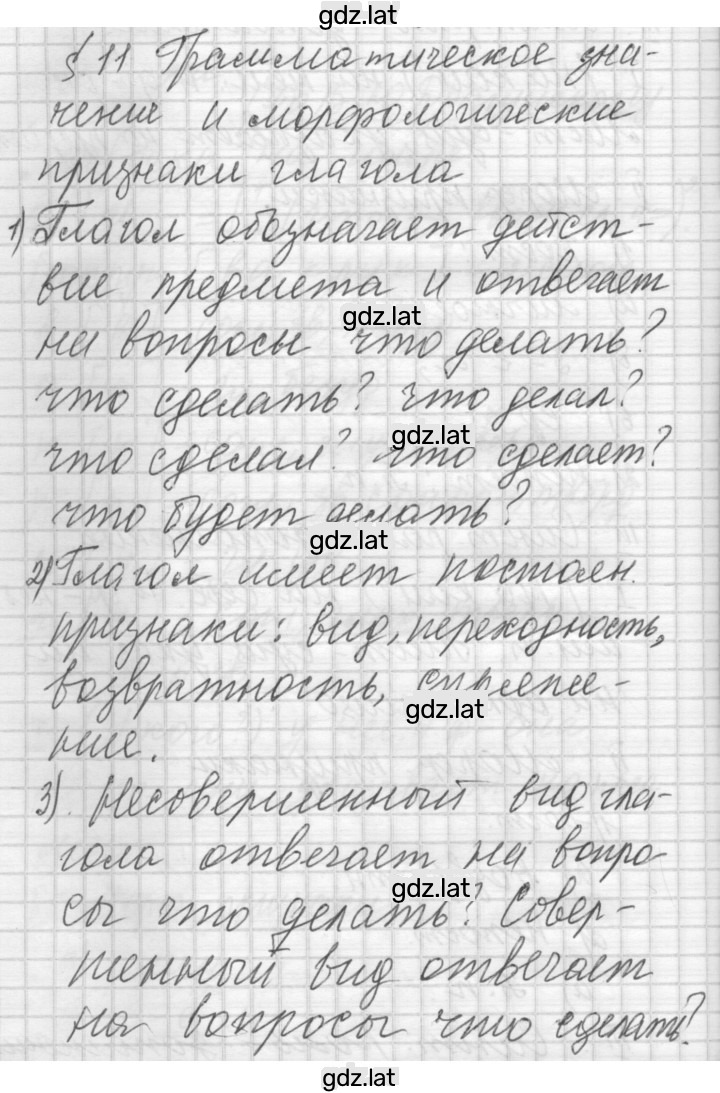 gdz.lat
§ 11 Грамматическое зна-
чение и морфологические
признаки глагола
1) Глагол обозначает дейст-
вие предмета и отвечает
gdz.lat
на вопросы что делать?
что сделать? что делал?
gdz.lat
что сделал? что сделает?
что будет делать?
gdz.lat
2) Глагол имеет постоян.
признаки: вид, переходность,
возвратность, спряже-
gdz.lat
ние.
3). Несовершенный вид гла-
гола отвечает на вопро-
gdz.lat
сы что делать? Совер-
шенный вид отвечает
на вопросы что сделать?
gdz.lat